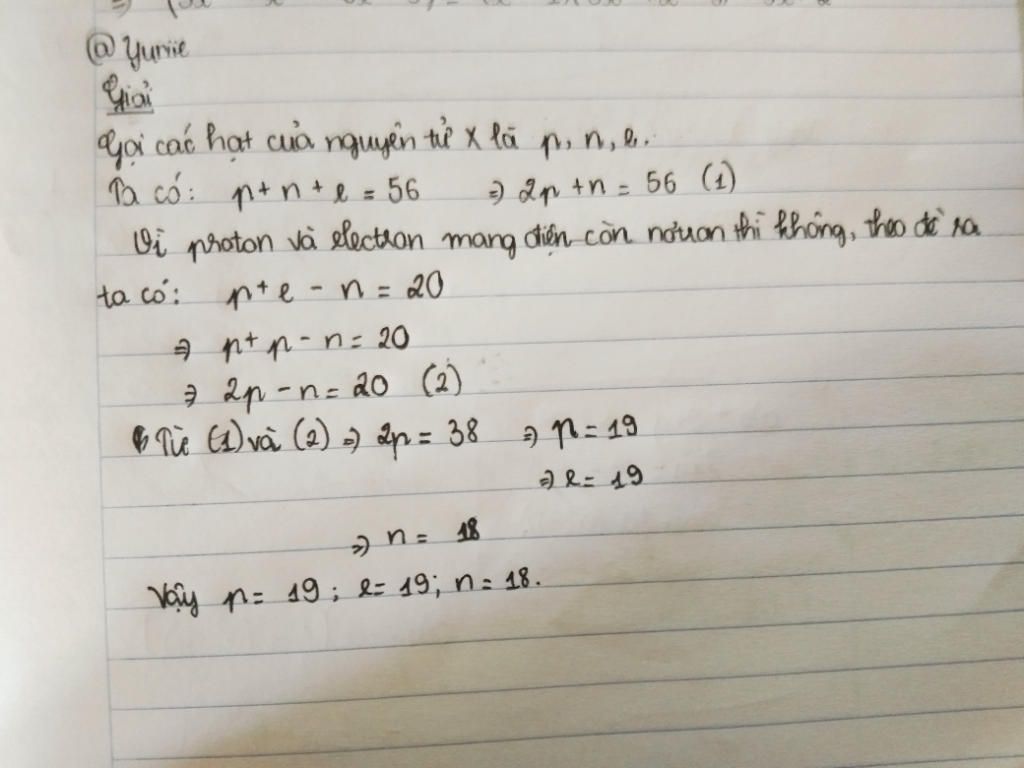 @ Yuriie
Giải
Gọi các hạt của nguyên tử X là p, n, e.
Ta có: p + n + e = 56 => 2p + n = 56 (1)
Vì proton và electron mang điện còn nơtron thì không, theo đề ra
ta có: p + e - n = 20
=> p + p - n = 20
=> 2p - n = 20 (2)
Từ (1) và (2) => 2p = 38 => p = 19
=> e = 19
=> n = 18
Vậy p = 19 ; e = 19; n = 18.